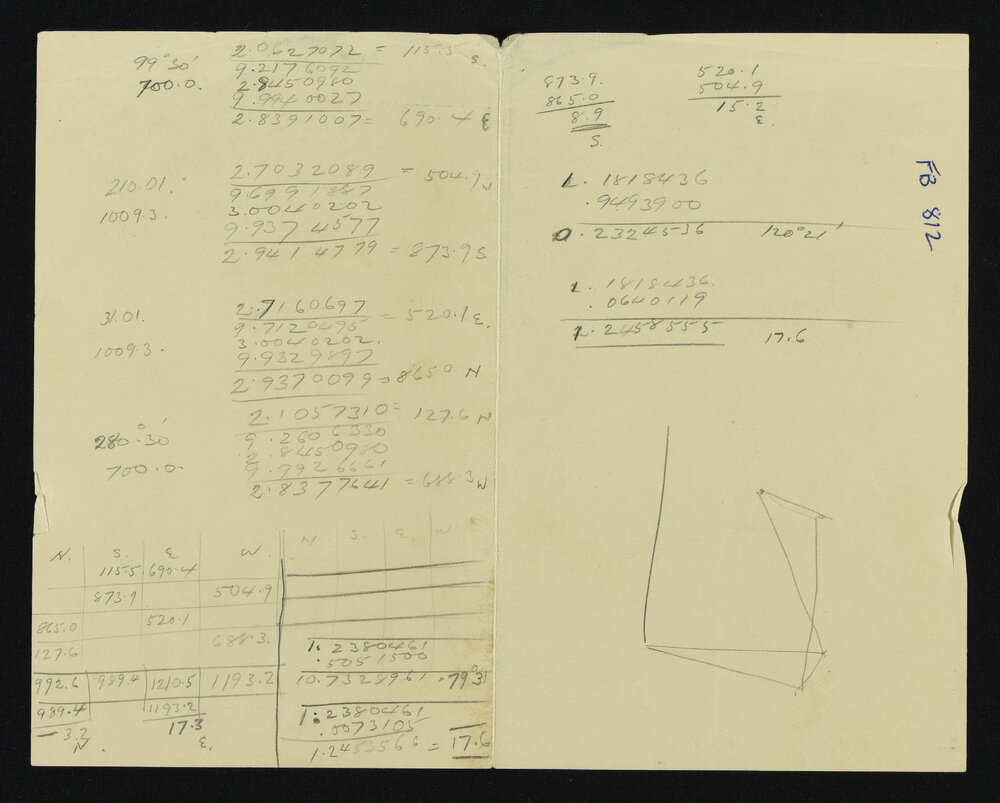 99° 30' 2.0627072 = 115.5 S.
9.2176092
700.0. 2.8450980
9.9940027
2.8391007 = 690.4 E
210.01. 2.7032089 = 504.9 W
9.6991887
1009.3. 3.0040202
9.9374577
2.9414779 = 873.9 S.
31.01. 2.7160697 = 520.1 E.
9.7120495
1009.3. 3.0040202.
9.9329897
2.9370099 = 865.0 N
280° 30' 2.1057310 = 127.6 N
9.2606330
700.0. 2.8450980
9.9926661
2.8377641 = 688.3 W
N. S. E W.
115.5 690.4
873.9 504.9
865.0 520.1
127.6 688.3.
992.6 989.4 1210.5 1193.2
989.4 1193.2
3.2 17.3
N. E.
N. S. E W
1. 2380461
.5051500
10.7328961 = 79°31
1.2380461
.0073105
1.2453566 = 17.6
873.9.
865.0
8.9
S.
520.1
504.9
15.2
E.
1. 1818436
.9493900
0.2324536 120°21'
1. 1818436.
.0640119
1.2458555 17.6
FB 812